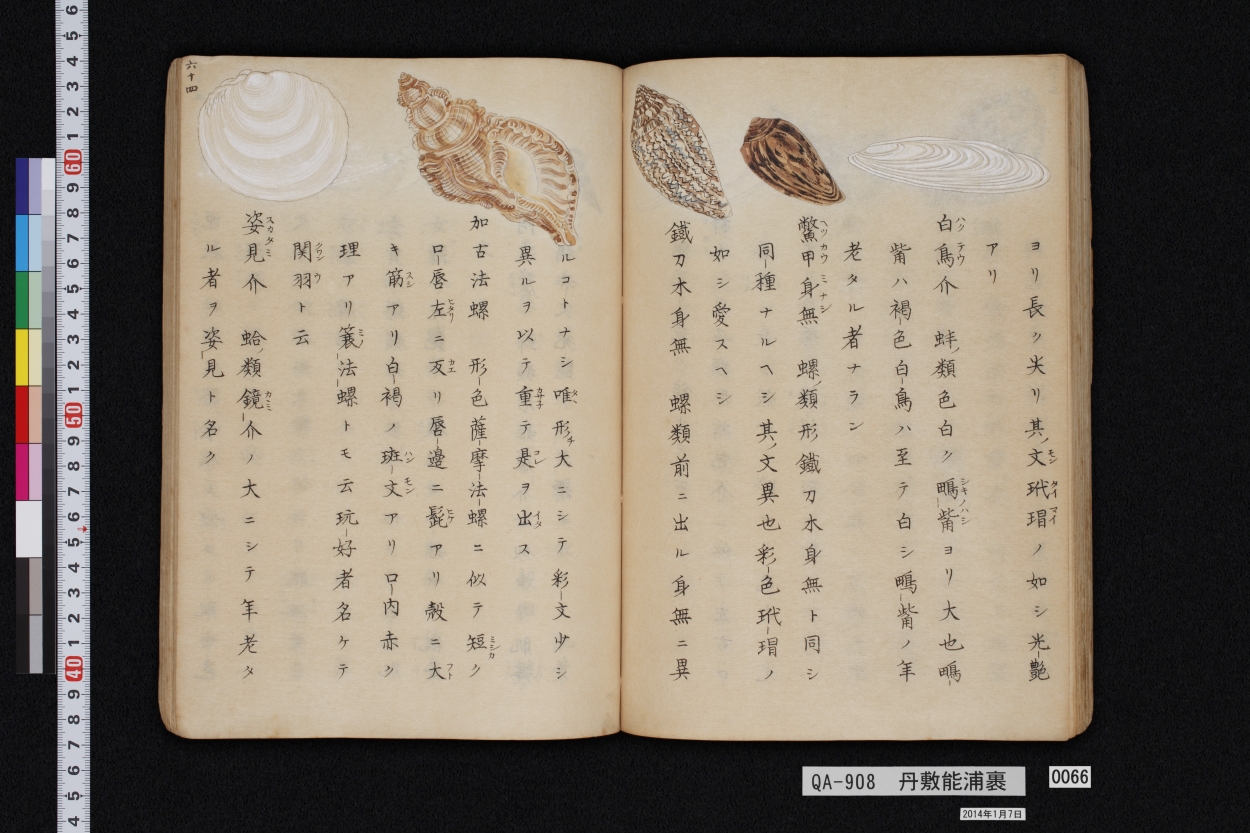 ヨリ長ク尖リ其ノ文玳瑁ノ如シ光艶
アリ
白鳥介 蚌ノ類色白ク鴫觜ヨリ大也鴫
觜ハ褐色白鳥ハ至テ白シ鴫觜ノ年
老タル者ナラン
鱉甲身無 螺ノ類形鐵刀木身無ト同シ
同種ナルヘシ其ノ文異也彩色玳瑁ノ
如シ愛スヘシ
鐵刀木身無 螺類前ニ出ル身無ニ異
ルコトナシ唯形チ大ニシテ彩文少シ
異ルヲ以テ重テ是ヲ出ス
加古法螺 形色薩摩法螺ニ似テ短ク
口唇左ニ反リ唇邊ニ髭アリ殻ニ大
キ筋アリ白褐ノ斑文アリ口内赤ク
理アリ簑法螺トモ云玩好者名ケテ
関羽ト云
姿見介 蛤ノ類鏡介ノ大ニシテ年老タ
ル者ヲ姿見ト名ク
六十四
QA-908 丹敷能浦裹
0066
2014年1月7日